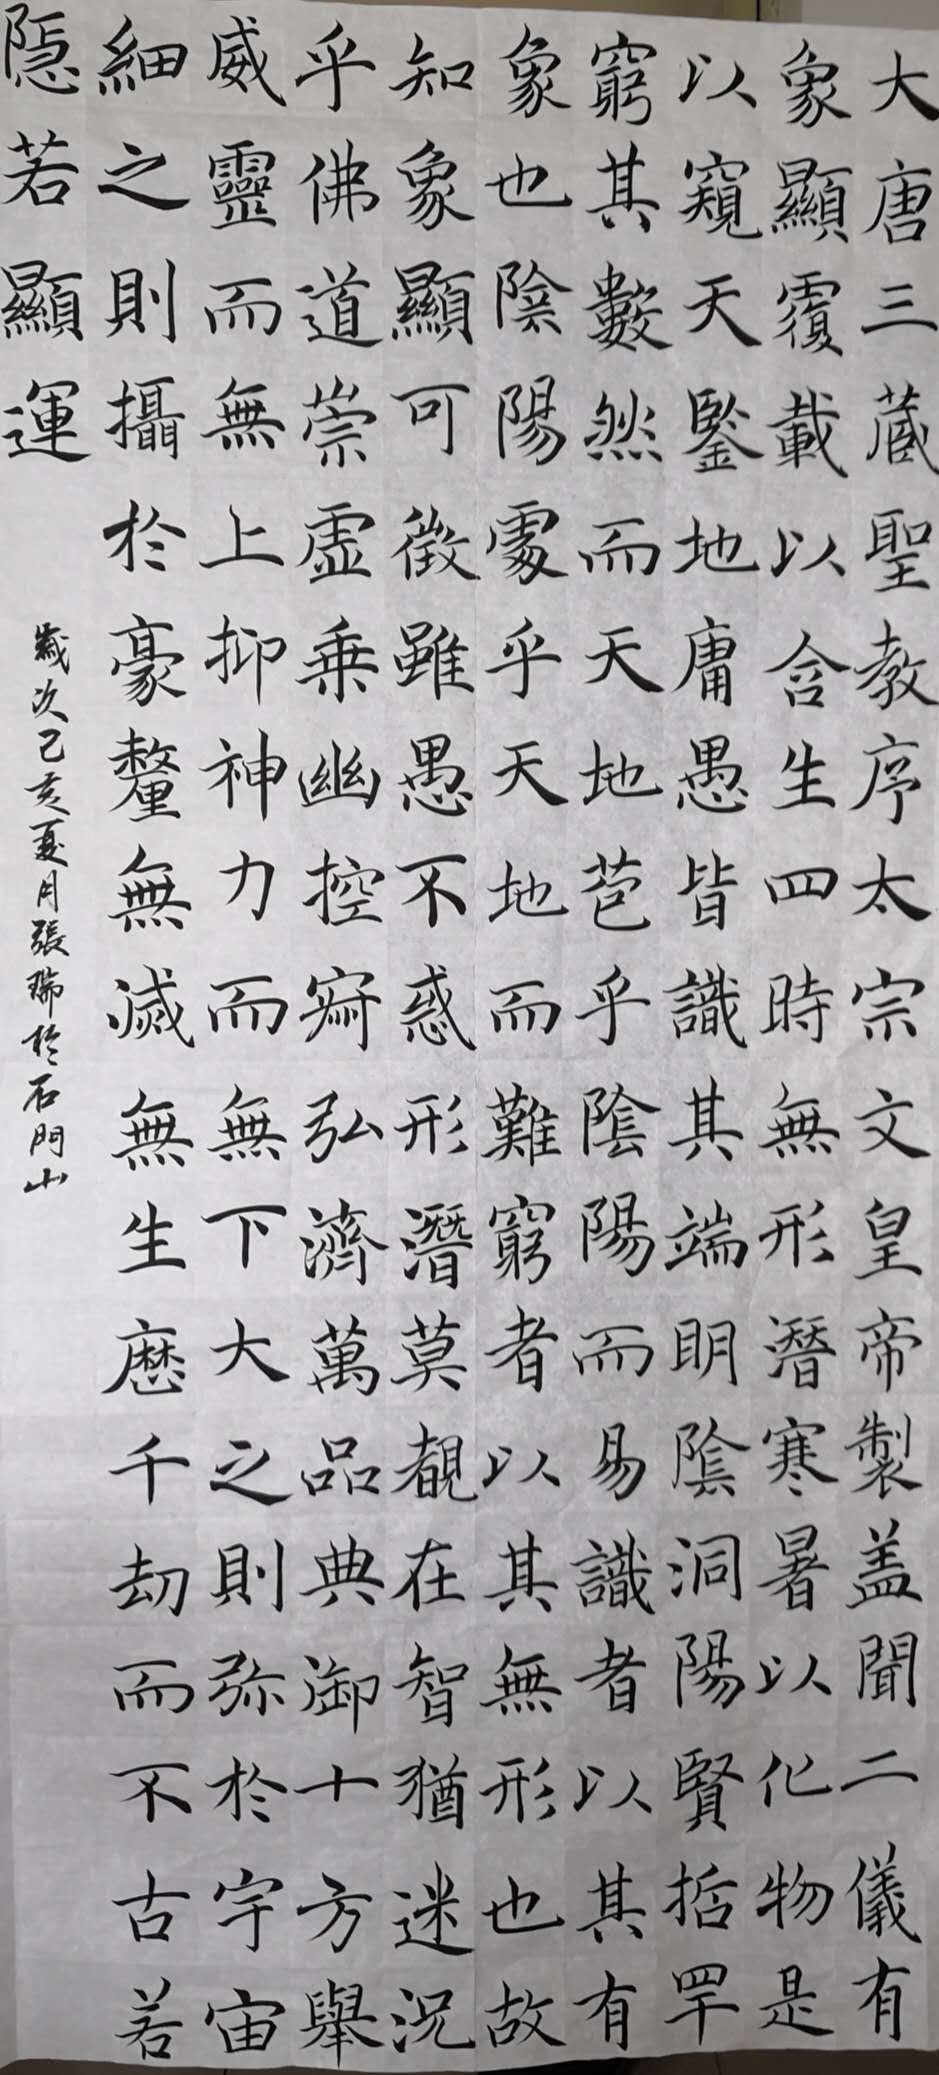 大唐三藏聖教序太宗文皇帝製盖聞二儀有
象顯覆載以含生四時無形潛寒暑以化物是
以窺天鑒地庸愚皆識其端明陰洞陽賢哲罕
窮其數然而天地苞乎陰陽而易識者以其有
象也陰陽處乎天地而難窮者以其無形也故
知象顯可徵雖愚不惑形潛莫覩在智猶迷况
乎佛道崇虛乗幽控寂弘濟萬品典御十方舉
威靈而無上抑神力而無下大之則弥於宇宙
細之則攝於豪釐無滅無生歷千劫而不古若
隱若顯運
歲次己亥夏月張瑞於石門山